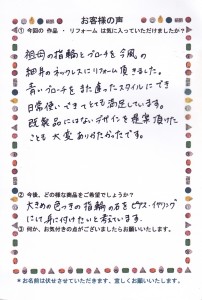 お客様の声
① 今回の 作品 ・ リフォーム は気に入っていただけましたか？
祖母の指輪とブローチを今風の
細身のネックレスにリフォーム頂きました。
青いブローチもまた違ったスタイルにでき
日常使いできてとても満足しています。
既製品にはないデザインを提案頂けた
ことも大変ありがたかったです。
② 今後、どの様な商品をご希望でしょうか？
大きめの色つきの指輪の石をピアス・イヤリング
にして身に付けたいと考えています。
③ 何か、お気付きの点がございましたらお願いいたします。
＊お名前は伏せさせていただきます、宜しくお願いいたします。